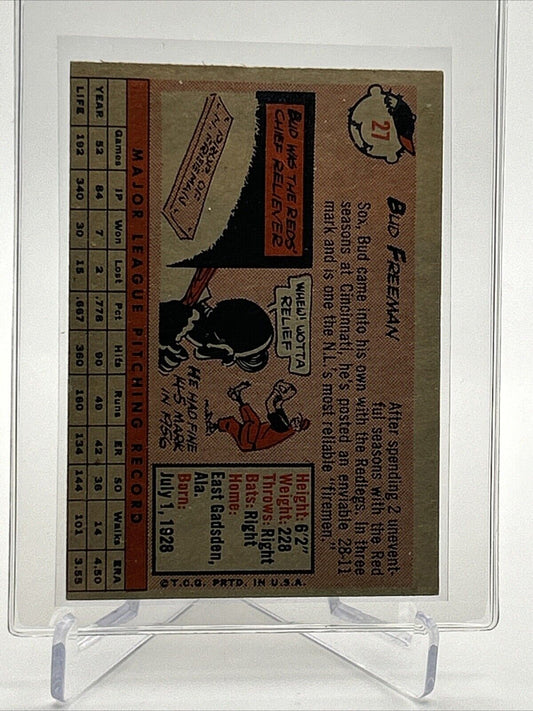 27
BUD FREEMAN
After spending 2 unevent-
ful seasons with the Red
Sox, Bud came into his own with the Redlegs. In three
seasons at Cincinnati, he's posted an enviable 28-11
mark and is one the N.L.'s most reliable "firemen."
OF
FREEMAN
BUD WAS THE REDS'
CHIEF RELIEVER
WHEW! WOTTA
RELIEF
HE HAD FINE
14-5 MARK
IN 1956
Height: 6'2"
Weight: 228
Throws: Right
Bats: Right
Home:
East Gadsden,
Ala.
Born:
July 1, 1928
©T.C.G. PRTD. IN U.S.A.
MAJOR LEAGUE PITCHING RECORD
Games IP Won Lost Pct Hits Runs ER SO Walks ERA
YEAR 52 84 7 2 .778 90 49 42 38 14 4.50
LIFE 192 340 30 15 .667 360 180 134 144 101 3.55